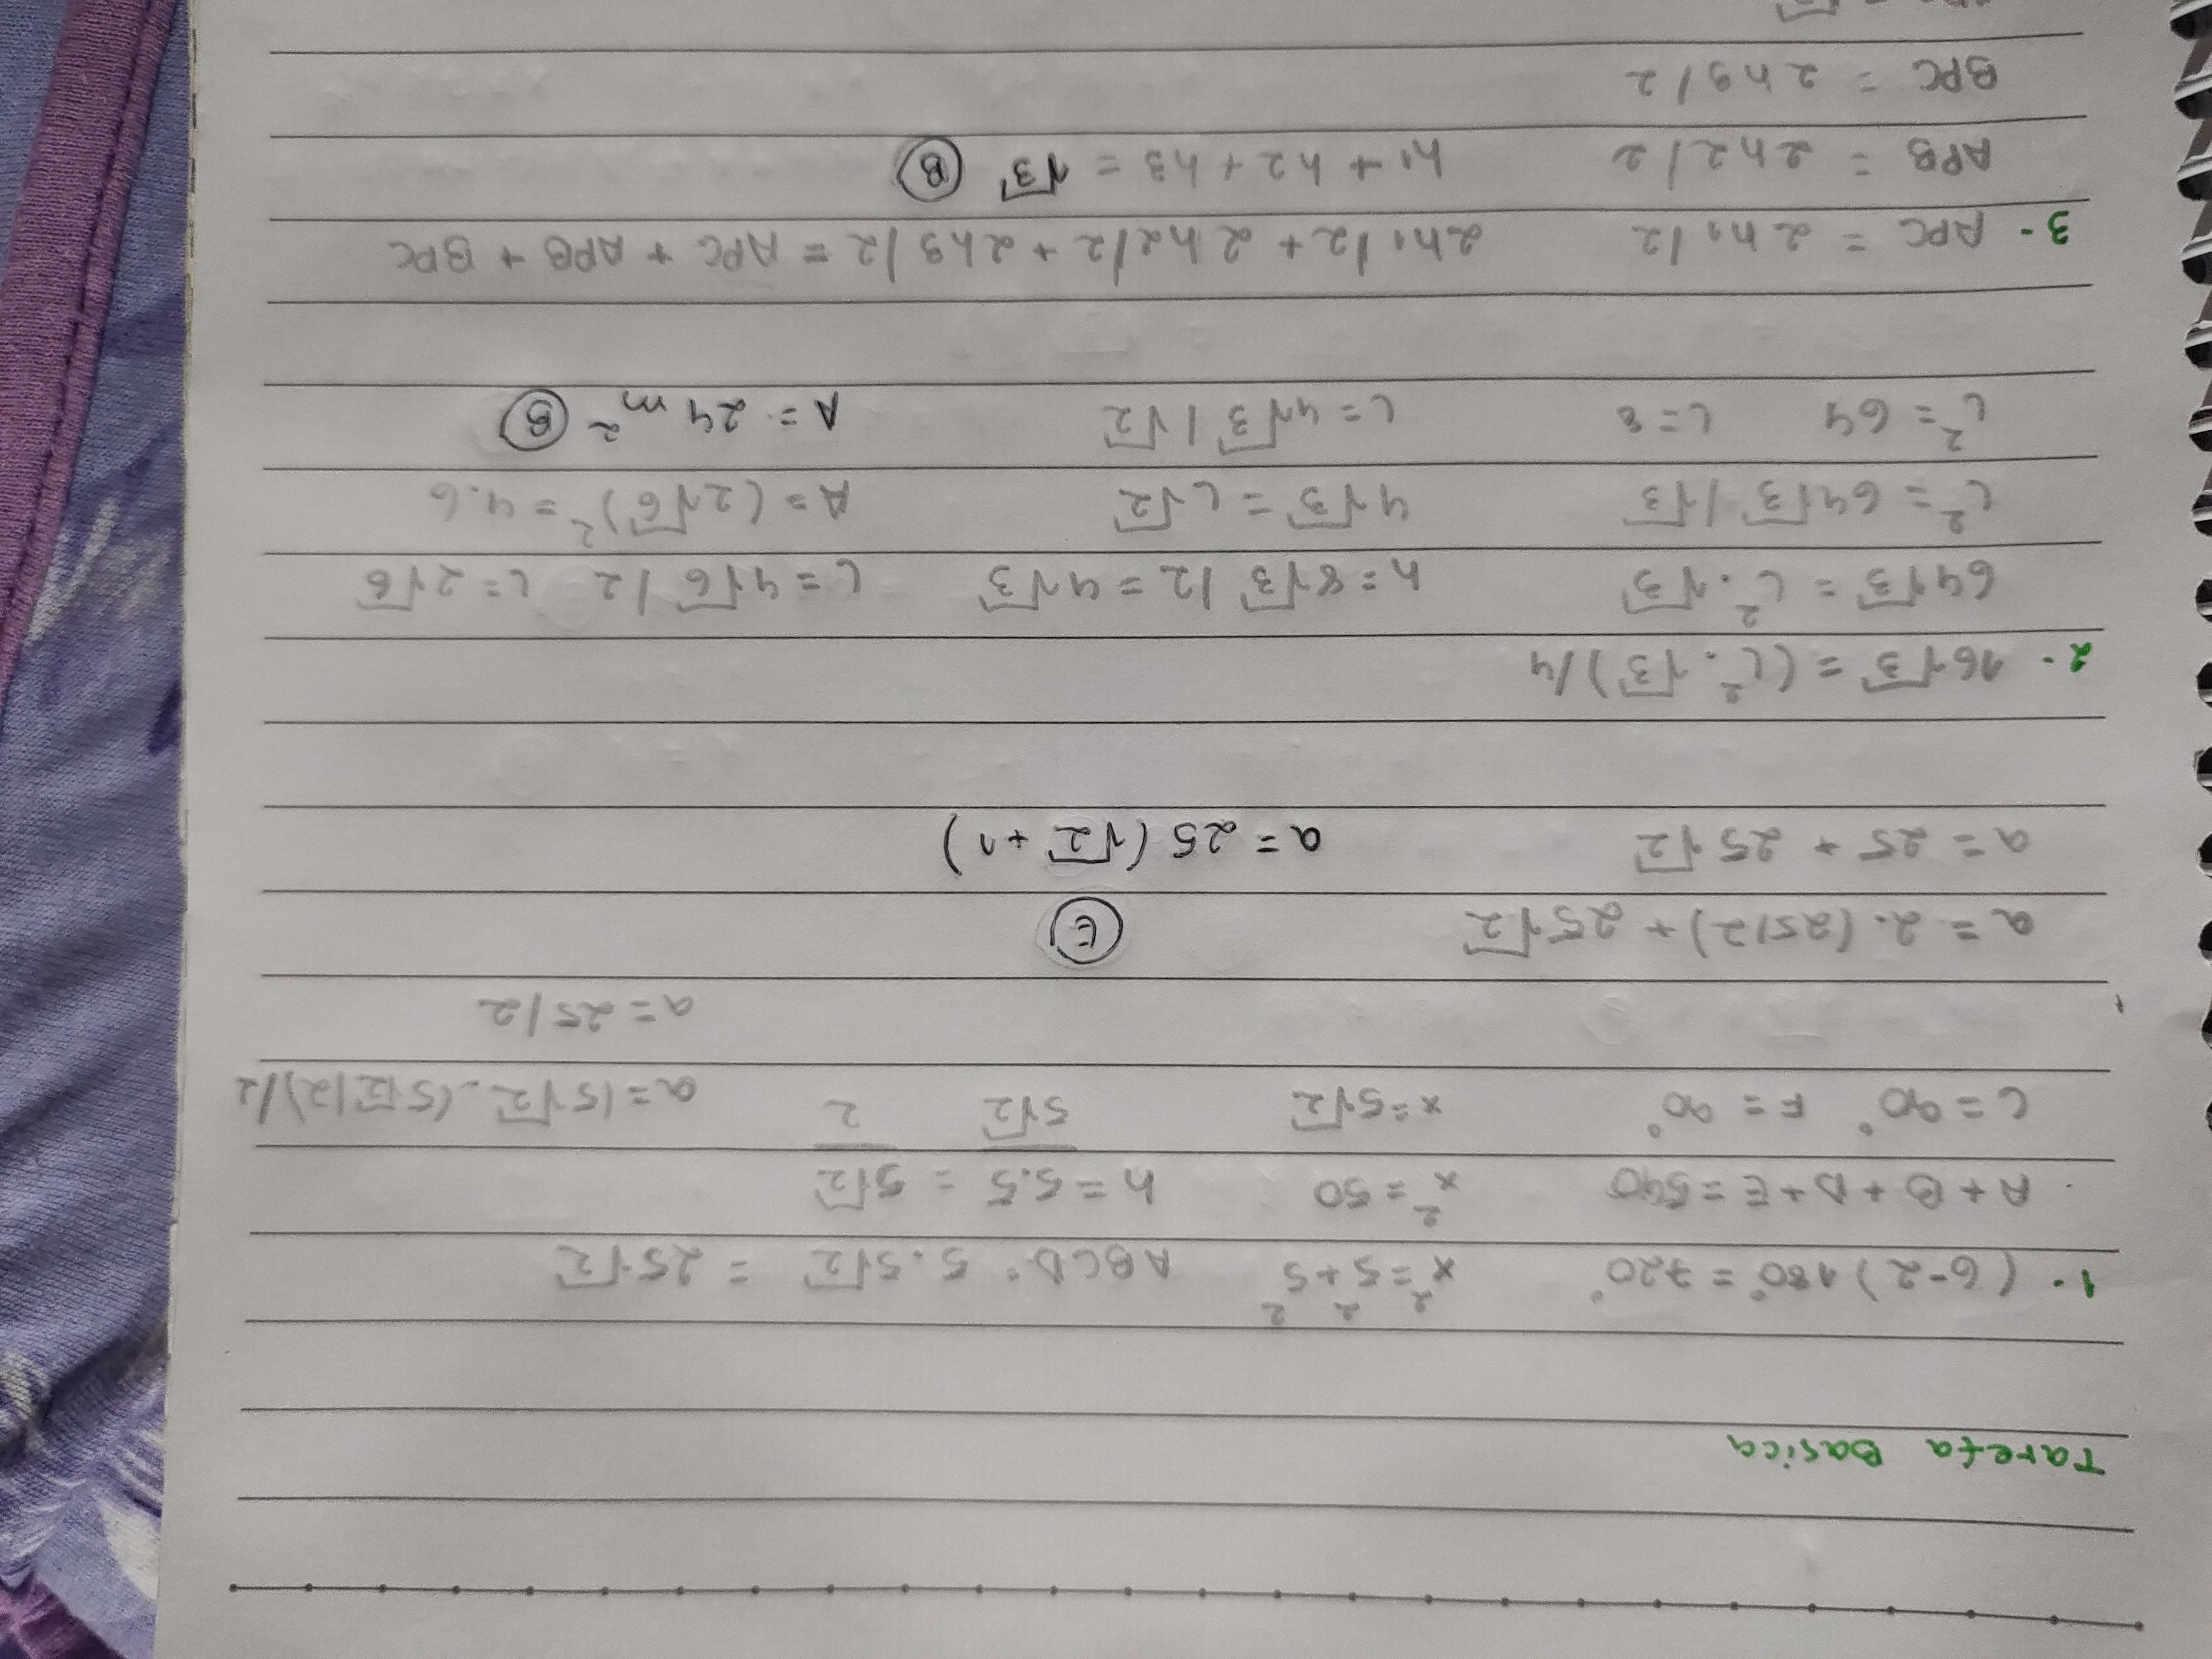 Tarefa Basica
1- (6-2) 180° = 720° x² = 5² + 5² ABCD = 5.5√2 = 25√2
A + B + D + E = 540 x² = 50 h = 5.5/5√2 = 5√2/2
C = 90° F = 90° x = 5√2 a = (5√2 . (5√2/2)/2
a = 25/2
a = 2. (25/2) + 25√2 E
a = 25 + 25√2 a = 25 (√2 + 1)
2- 16√3 = (L² . √3)/4
64√3 = L² . √3 h = 8√3 /2 = 4√3 L = 4√6 /2 L = 2√6
L² = 64√3 /√3 4√3 = L√2 A = (2√6)² = 4.6
L² = 64 L = 8 L = 4√3 /√2 A = 24 m² B
3- APC = 2h1/2 2h1/2 + 2h2/2 + 2h3/2 = APC + APB + BPC
APB = 2h2/2 h1 + h2 + h3 = √3 B
BPC = 2h3/2